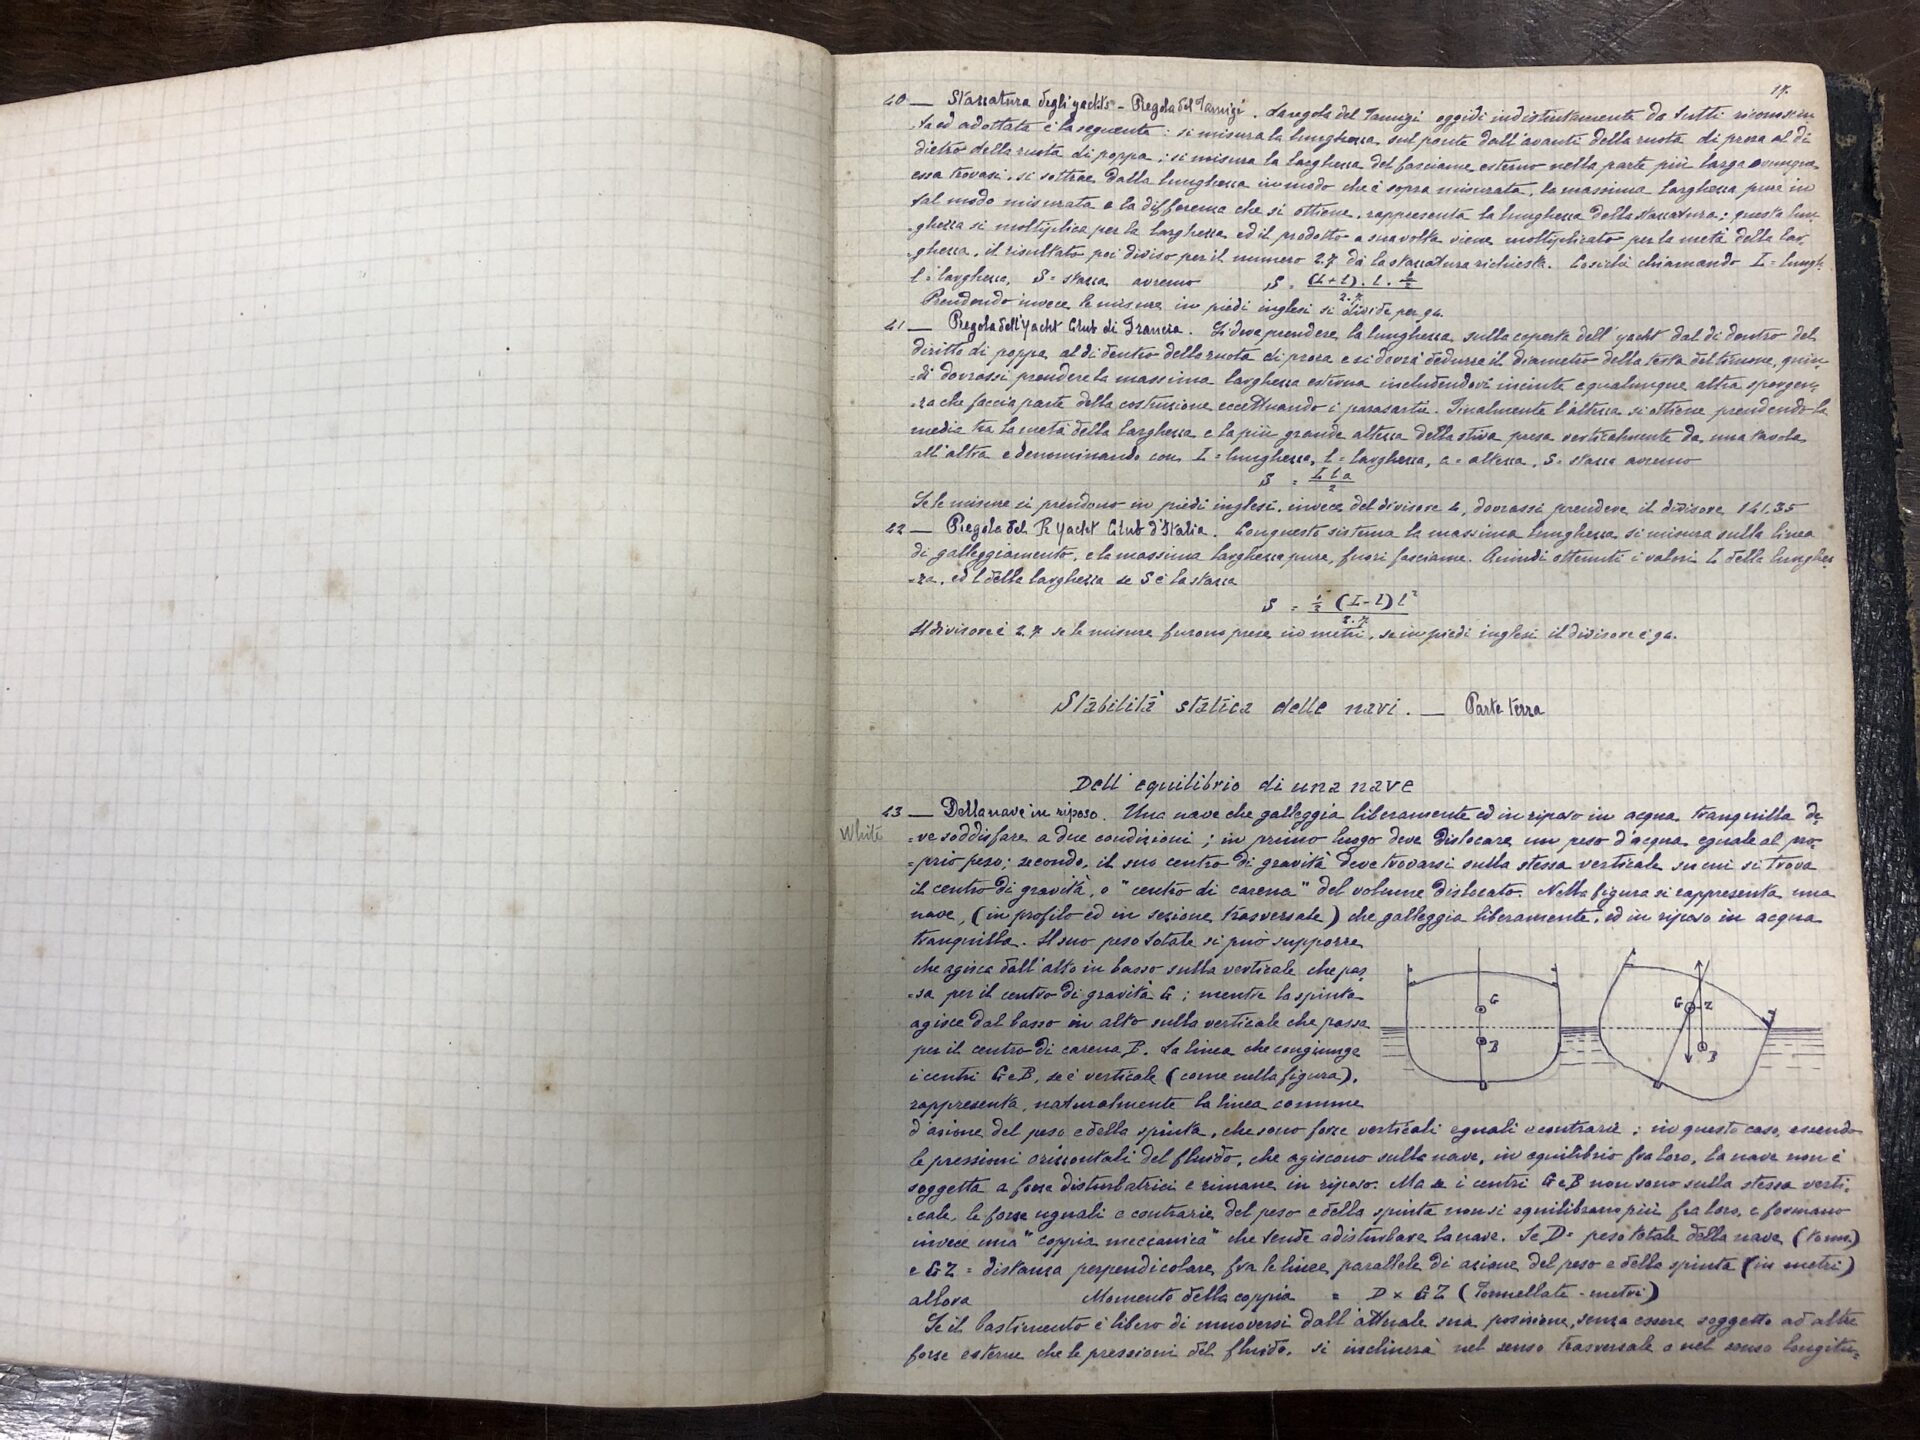 17.
20 — Stazzatura degli yachts - Regola del Tamigi. La regola del Tamigi oggidì indistintamente da tutti riconosciu-
-ta ed adottata è la seguente: si misura la lunghezza sul ponte dall'avanti della ruota di prora al di
dietro della ruota di poppa; si misura la larghezza del fasciame esterno nella parte più larga ovunque
essa trovasi, si sottrae dalla lunghezza in modo che è sopra misurata, la massima larghezza pure in
tal modo misurata e la differenza che si ottiene, rappresenta la lunghezza della stazzatura; questa lun-
-ghezza si moltiplica per la larghezza ed il prodotto a sua volta viene moltiplicato per la metà della lar-
-ghezza, il risultato poi diviso per il numero 2.7 dà la stazzatura richiesta. Cosichè chiamando L = lungh.
l = larghezza, S = stazza avremo S = (L+l). l. l/2 / 2.7
Prendendo invece le misure in piedi inglesi si divide per 94.
21 — Regola dell'Yacht Club di Francia. Si deve prendere la lunghezza sulla coperta dell'yacht dal di dentro del
diritto di poppa al di dentro della ruota di prora e si dovrà dedurre il diametro della testa del timone, quin-
-di dovrassi prendere la massima larghezza esterna includendovi incinte e qualunque altra sporgen-
-za che faccia parte della costruzione eccettuando i parasartie. Finalmente l'altezza si ottiene prendendo la
media tra la metà della larghezza e la più grande altezza della stiva presa verticalmente da una tavola
all'altra e denominando con L = lunghezza, l = larghezza, a = altezza, S = stazza avremo
S = L l a / 2
Se le misure si prendono in piedi inglesi, invece del divisore 4, dovrassi prendere il divisore 141.35
22 — Regola del R Yacht Club d'Italia. Con questo sistema la massima lunghezza si misura sulla linea
di galleggiamento, e la massima larghezza pure, fuori fasciame. Quindi ottenuti i valori L della lunghez-
-za, ed l della larghezza se S è la stazza
S = ½ (L-l) l² / 2.7
Il divisore è 2.7 se le misure furono prese in metri, se in piedi inglesi il divisore è 94.
Stabilità statica delle navi. — Parte terza
Dell'equilibrio di una nave
23 — Della nave in riposo. Una nave che galleggia liberamente ed in riposo in acqua tranquilla de-
White
-ve soddisfare a due condizioni; in primo luogo deve dislocare un peso d'acqua eguale al pro-
-prio peso; secondo, il suo centro di gravità deve trovarsi sulla stessa verticale su cui si trova
il centro di gravità, o "centro di carena" del volume dislocato. Nella figura si rappresenta una
nave, (in profilo ed in sezione trasversale) che galleggia liberamente, ed in riposo in acqua
tranquilla. Il suo peso totale si può supporre
che agisca dall'alto in basso sulla verticale che pas-
-sa per il centro di gravità G; mentre la spinta
agisce dal basso in alto sulla verticale che passa
per il centro di carena B. La linea che congiunge
i centri G e B, se è verticale (come nella figura),
rappresenta, naturalmente la linea comune
G
B
G
Z
B
d'azione del peso e della spinta, che sono forze verticali eguali e contrarie; in questo caso, essendo
le pressioni orizzontali del fluido, che agiscono sulla nave, in equilibrio fra loro, la nave non è
soggetta a forze disturbatrici e rimane in riposo. Ma se i centri G e B non sono sulla stessa verti-
-cale, le forze uguali e contrarie del peso e della spinta non si equilibrano più fra loro, e formano
invece una "coppia meccanica" che tende a disturbare la nave. Se D = peso totale della nave (tonn.)
e GZ = distanza perpendicolare fra le linee parallele di azione del peso e della spinta (in metri)
allora Momento della coppia = D × GZ (Tonnellate-metri)
Se il bastimento è libero di muoversi dall'attuale sua posizione, senza essere soggetto ad altre
forze esterne che le pressioni del fluido, si inclinerà nel senso trasversale o nel senso longitu-